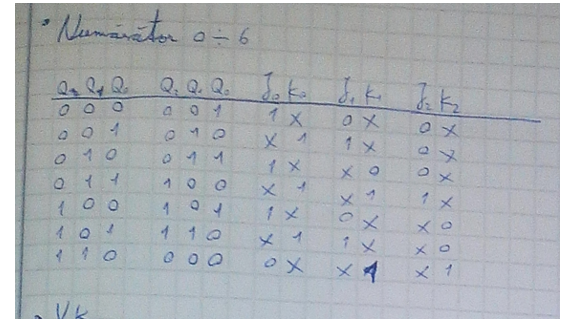 • Numărător 0 ÷ 6
Q₂ Q₁ Q₀ Q₂ Q₁ Q₀ J₀ K₀ J₁ K₁ J₂ K₂
0 0 0 0 0 1 1 X 0 X 0 X
0 0 1 0 1 0 X 1 1 X 0 X
0 1 0 0 1 1 1 X X 0 0 X
0 1 1 1 0 0 X 1 X 1 1 X
1 0 0 1 0 1 1 X 0 X X 0
1 0 1 1 1 0 X 1 1 X X 0
1 1 0 0 0 0 0 X X 1 X 1